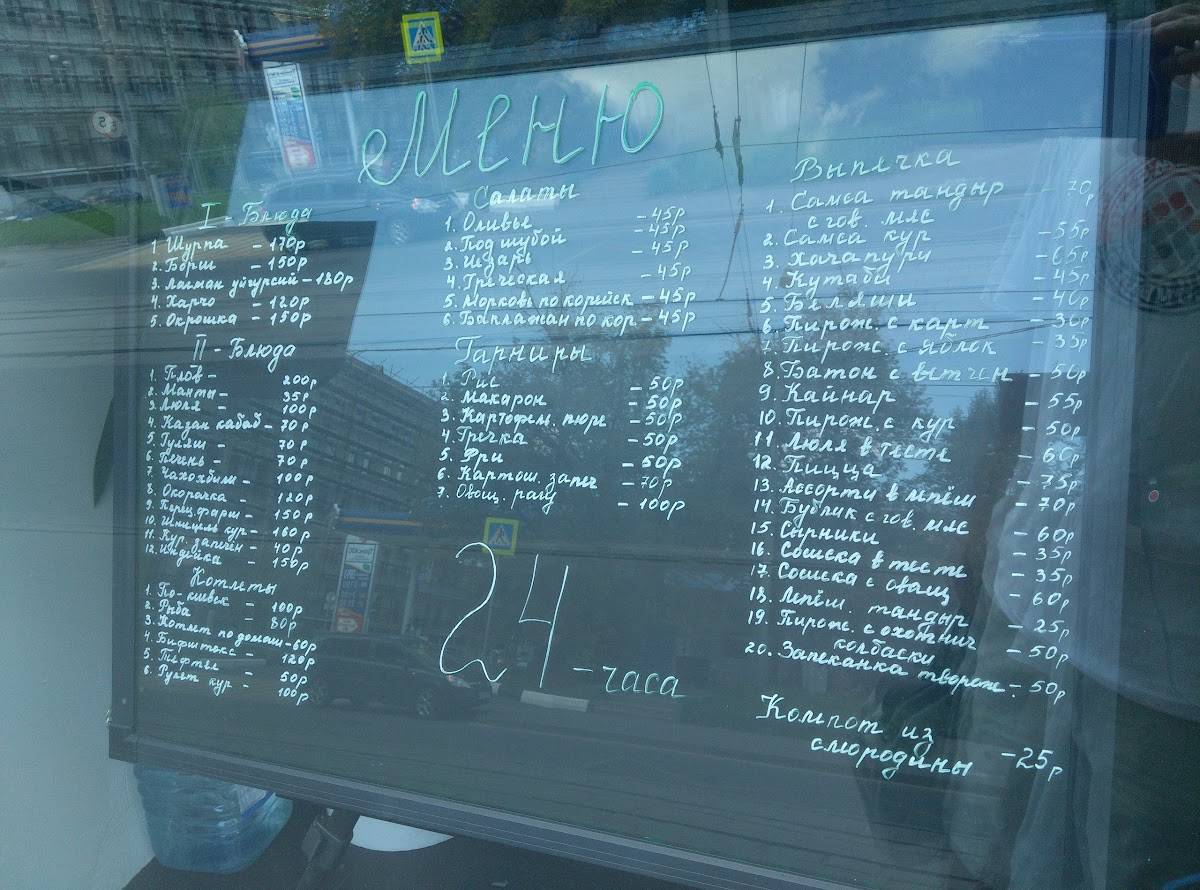 Меню
I - Блюда
1. Шурпа - 170р
2. Борщ - 150р
3. Лагман уйгурсий - 180р
4. Харчо - 120р
5. Окрошка - 150р
II - Блюда
1. Плов - 200р
2. Манты - 35р
3. Люля - 100р
4. Казан кабаб - 70р
5. Гуляш - 70р
6. Печень - 70р
7. Чахохбили - 100р
8. Окорачка - 120р
9. Перец фарш - 150р
10. Шницель кур - 160р
11. Кур. запечен - 40р
12. Индейка - 150р
Котлеты
1. По-киевск - 100р
2. Рыба - 80р
3. Котлет по домаш - 60р
4. Бифштекс - 120р
5. Тефтел - 50р
6. Рулет кур - 100р
Салаты
1. Оливье - 45р
2. Под шубой - 45р
3. Цезарь - 45р
4. Греческая - 45р
5. Морковь по корейск - 45р
6. Баплажан по кор - 45р
Гарниры
1. Рис - 50р
2. Макарон - 50р
3. Картофел. пюре - 50р
4. Гречка - 50р
5. Фри - 50р
6. Картош. запеч - 70р
7. Овощ. рагу - 100р
24 - часа
Выпячка
1. Самса тандыр - 70р
с гов. мяс
2. Самса кур - 55р
3. Хачапури - 65р
4. Кутабы - 45р
5. Беляши - 40р
6. Пирож. с карт - 30р
7. Пирож. с яблок - 35р
8. Батон с ветчен - 50р
9. Кайнар - 55р
10. Пирож. с кур - 50р
11. Люля в тесте - 60р
12. Пицца - 75р
13. Ассорти в лепёш - 70р
14. Бублик с гов. мяс - 60р
15. Сырники - 35р
16. Сосиска в тесте - 35р
17. Сосиска с овощ - 60р
18. Лепёш. тандыр - 25р
19. Пирож. с охотнич - 50р
колбаски
20. Запеканка творож. - 50р
Компот из
смородины - 25р